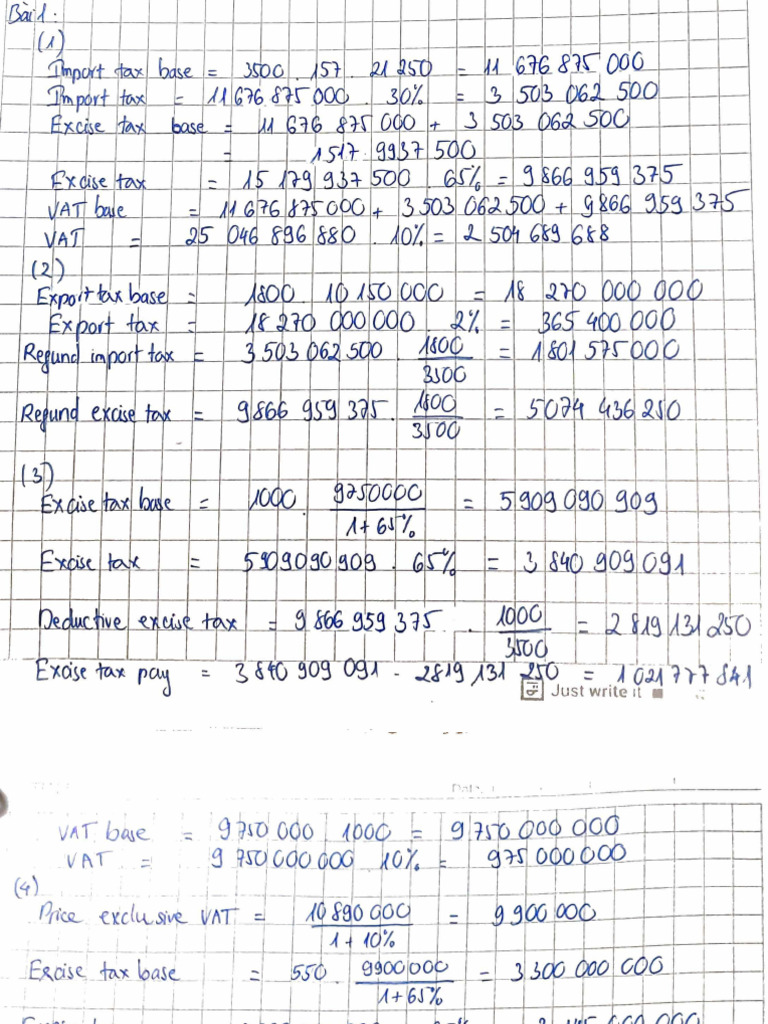 Bài 1:
(1)
Import tax base = 3500 . 157 . 21 250 = 11 676 875 000
Import tax = 11 676 875 000 . 30% = 3 503 062 500
Excise tax base = 11 676 875 000 + 3 503 062 500
= 1517 9937 500
Excise tax = 15 179 937 500 . 65% = 9866 959 375
VAT base = 11 676 875 000 + 3 503 062 500 + 9866 959 375
VAT = 25 046 896 880 . 10% = 2 504 689 688
(2)
Export tax base = 1800 . 10 150 000 = 18 270 000 000
Export tax = 18 270 000 000 . 2% = 365 400 000
Refund import tax = 3 503 062 500 . 1800 / 3500 = 1 801 575 000
Refund excise tax = 9866 959 375 . 1800 / 3500 = 5074 436 250
(3)
Excise tax base = 1000 . 9750000 / 1 + 65% = 5 909 090 909
Excise tax = 5909090 909 . 65% = 3 840 909 091
Deductive excise tax = 9 866 959 375 . 1000 / 3500 = 2 819 131 250
Excise tax pay = 3 840 909 091 - 2819 131 250 = 1 021 777 841
Just write it
VAT base = 9 750 000 . 1000 = 9 750 000 000
VAT = 9 750 000 000 . 10% = 975 000 000
(4)
Price exclusive VAT = 10 890 000 / 1 + 10% = 9 900 000
Excise tax base = 550 . 9900 000 / 1 + 65% = 3 300 000 000